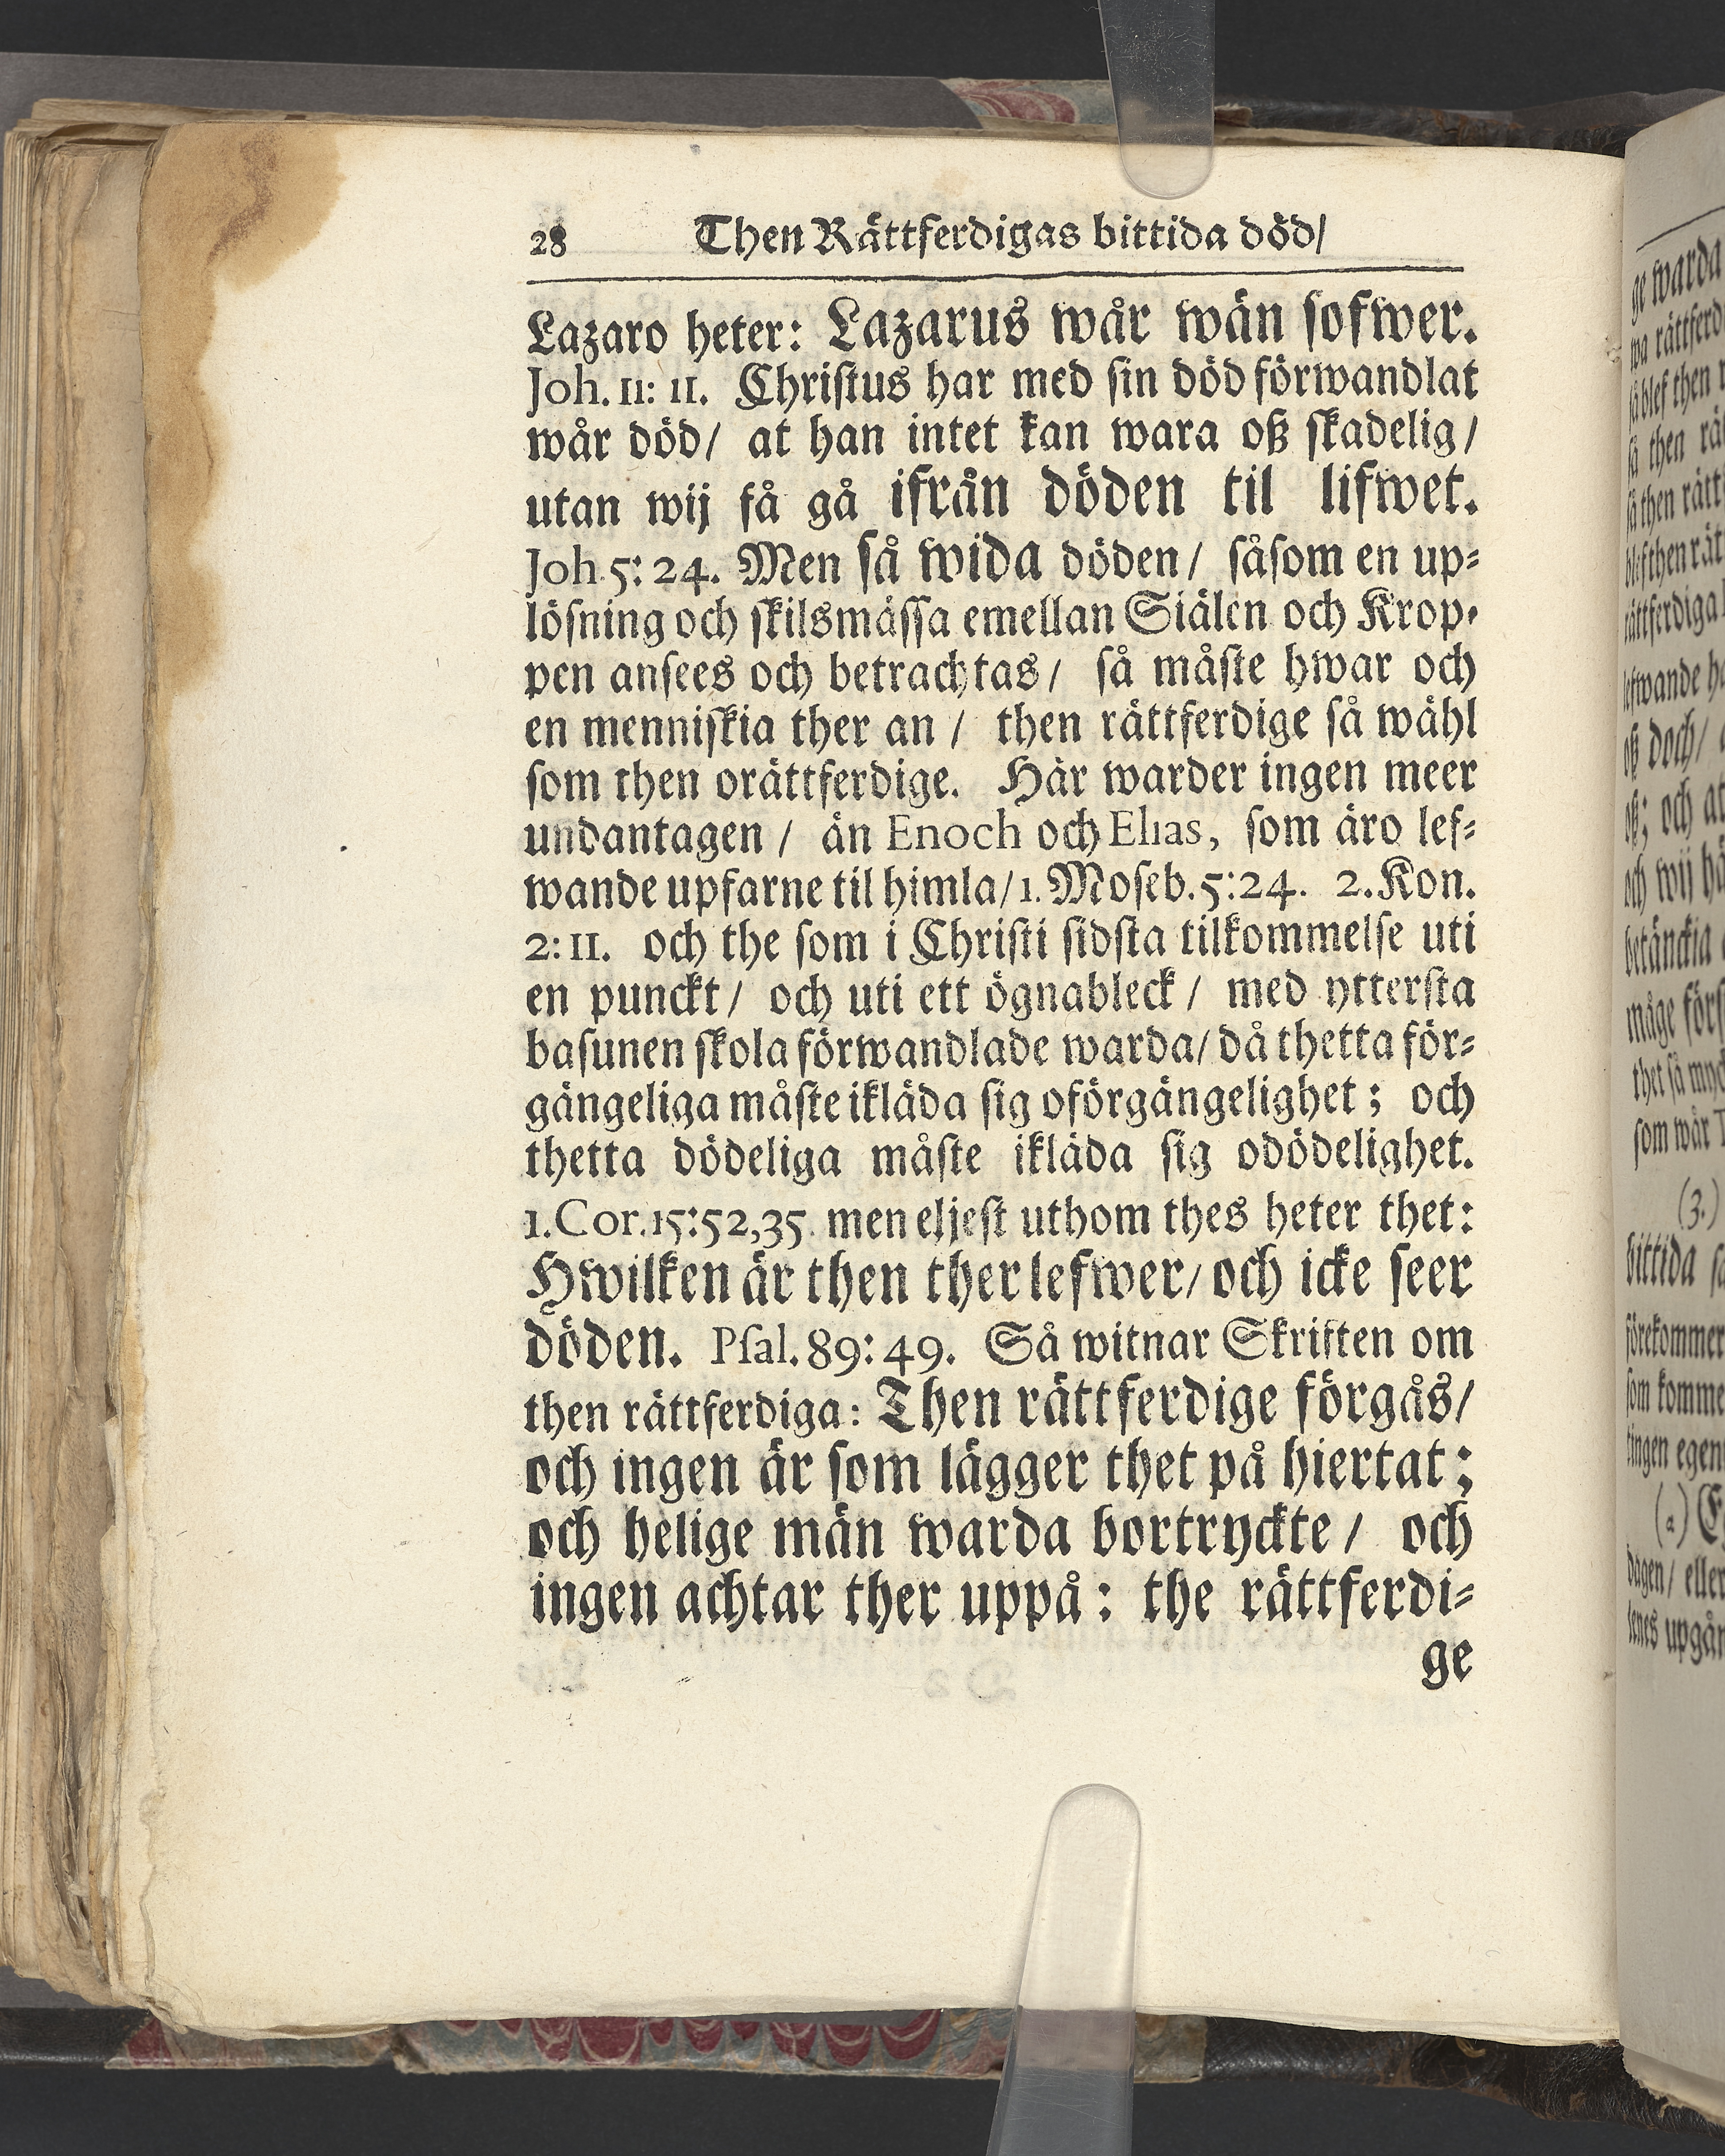 28 Then Rättferdigas bittida död/
Lazaro heter: Lazarus wår wän sofwer.
Joh. 11: 11. Christus har med sin död förwandlat
wår död/ at han intet kan wara oß skadelig/
utan wij få gå ifrån döden til lifwet.
Joh. 5: 24. Men så wida döden/ såsom en up-
lösning och skilsmässa emellan Siälen och Krop-
pen ansees och betrachtas/ så måste hwar och
en menniskia ther an/ then rättferdige så wähl
som then orättferdige. Här warder ingen meer
undantagen/ än Enoch och Elias, som äro lef-
wande upfarne til himla/ 1. Moseb. 5:24. 2. Kon.
2: 11. och the som i Christi sidsta tilkommelse uti
en punckt/ och uti ett ögnableck/ med yttersta
basunen skola förwandlade warda/ då thetta för-
gängeliga måste ikläda sig oförgängelighet; och
thetta dödeliga måste ikläda sig odödelighet.
1. Cor. 15:52,35. men eljest uthom thes heter thet:
Hwilken är then ther lefwer/ och icke seer
döden. Psal. 89: 49. Så witnar Skriften om
then rättferdiga: Then rättferdige förgås/
och ingen är som lägger thet på hiertat;
och helige män warda bortryckte/ och
ingen achtar ther uppå: the rättferdi-
ge
ge warda
rättferd
så blef then
så then
så then
blef then
rättferdiga
lefwande
oß doch/
oß; och at
och wij
betänckia
måge
thet så
som wår
(3.)
bittida
förekommer
som komme
tingen
(a)
dagen/ eller